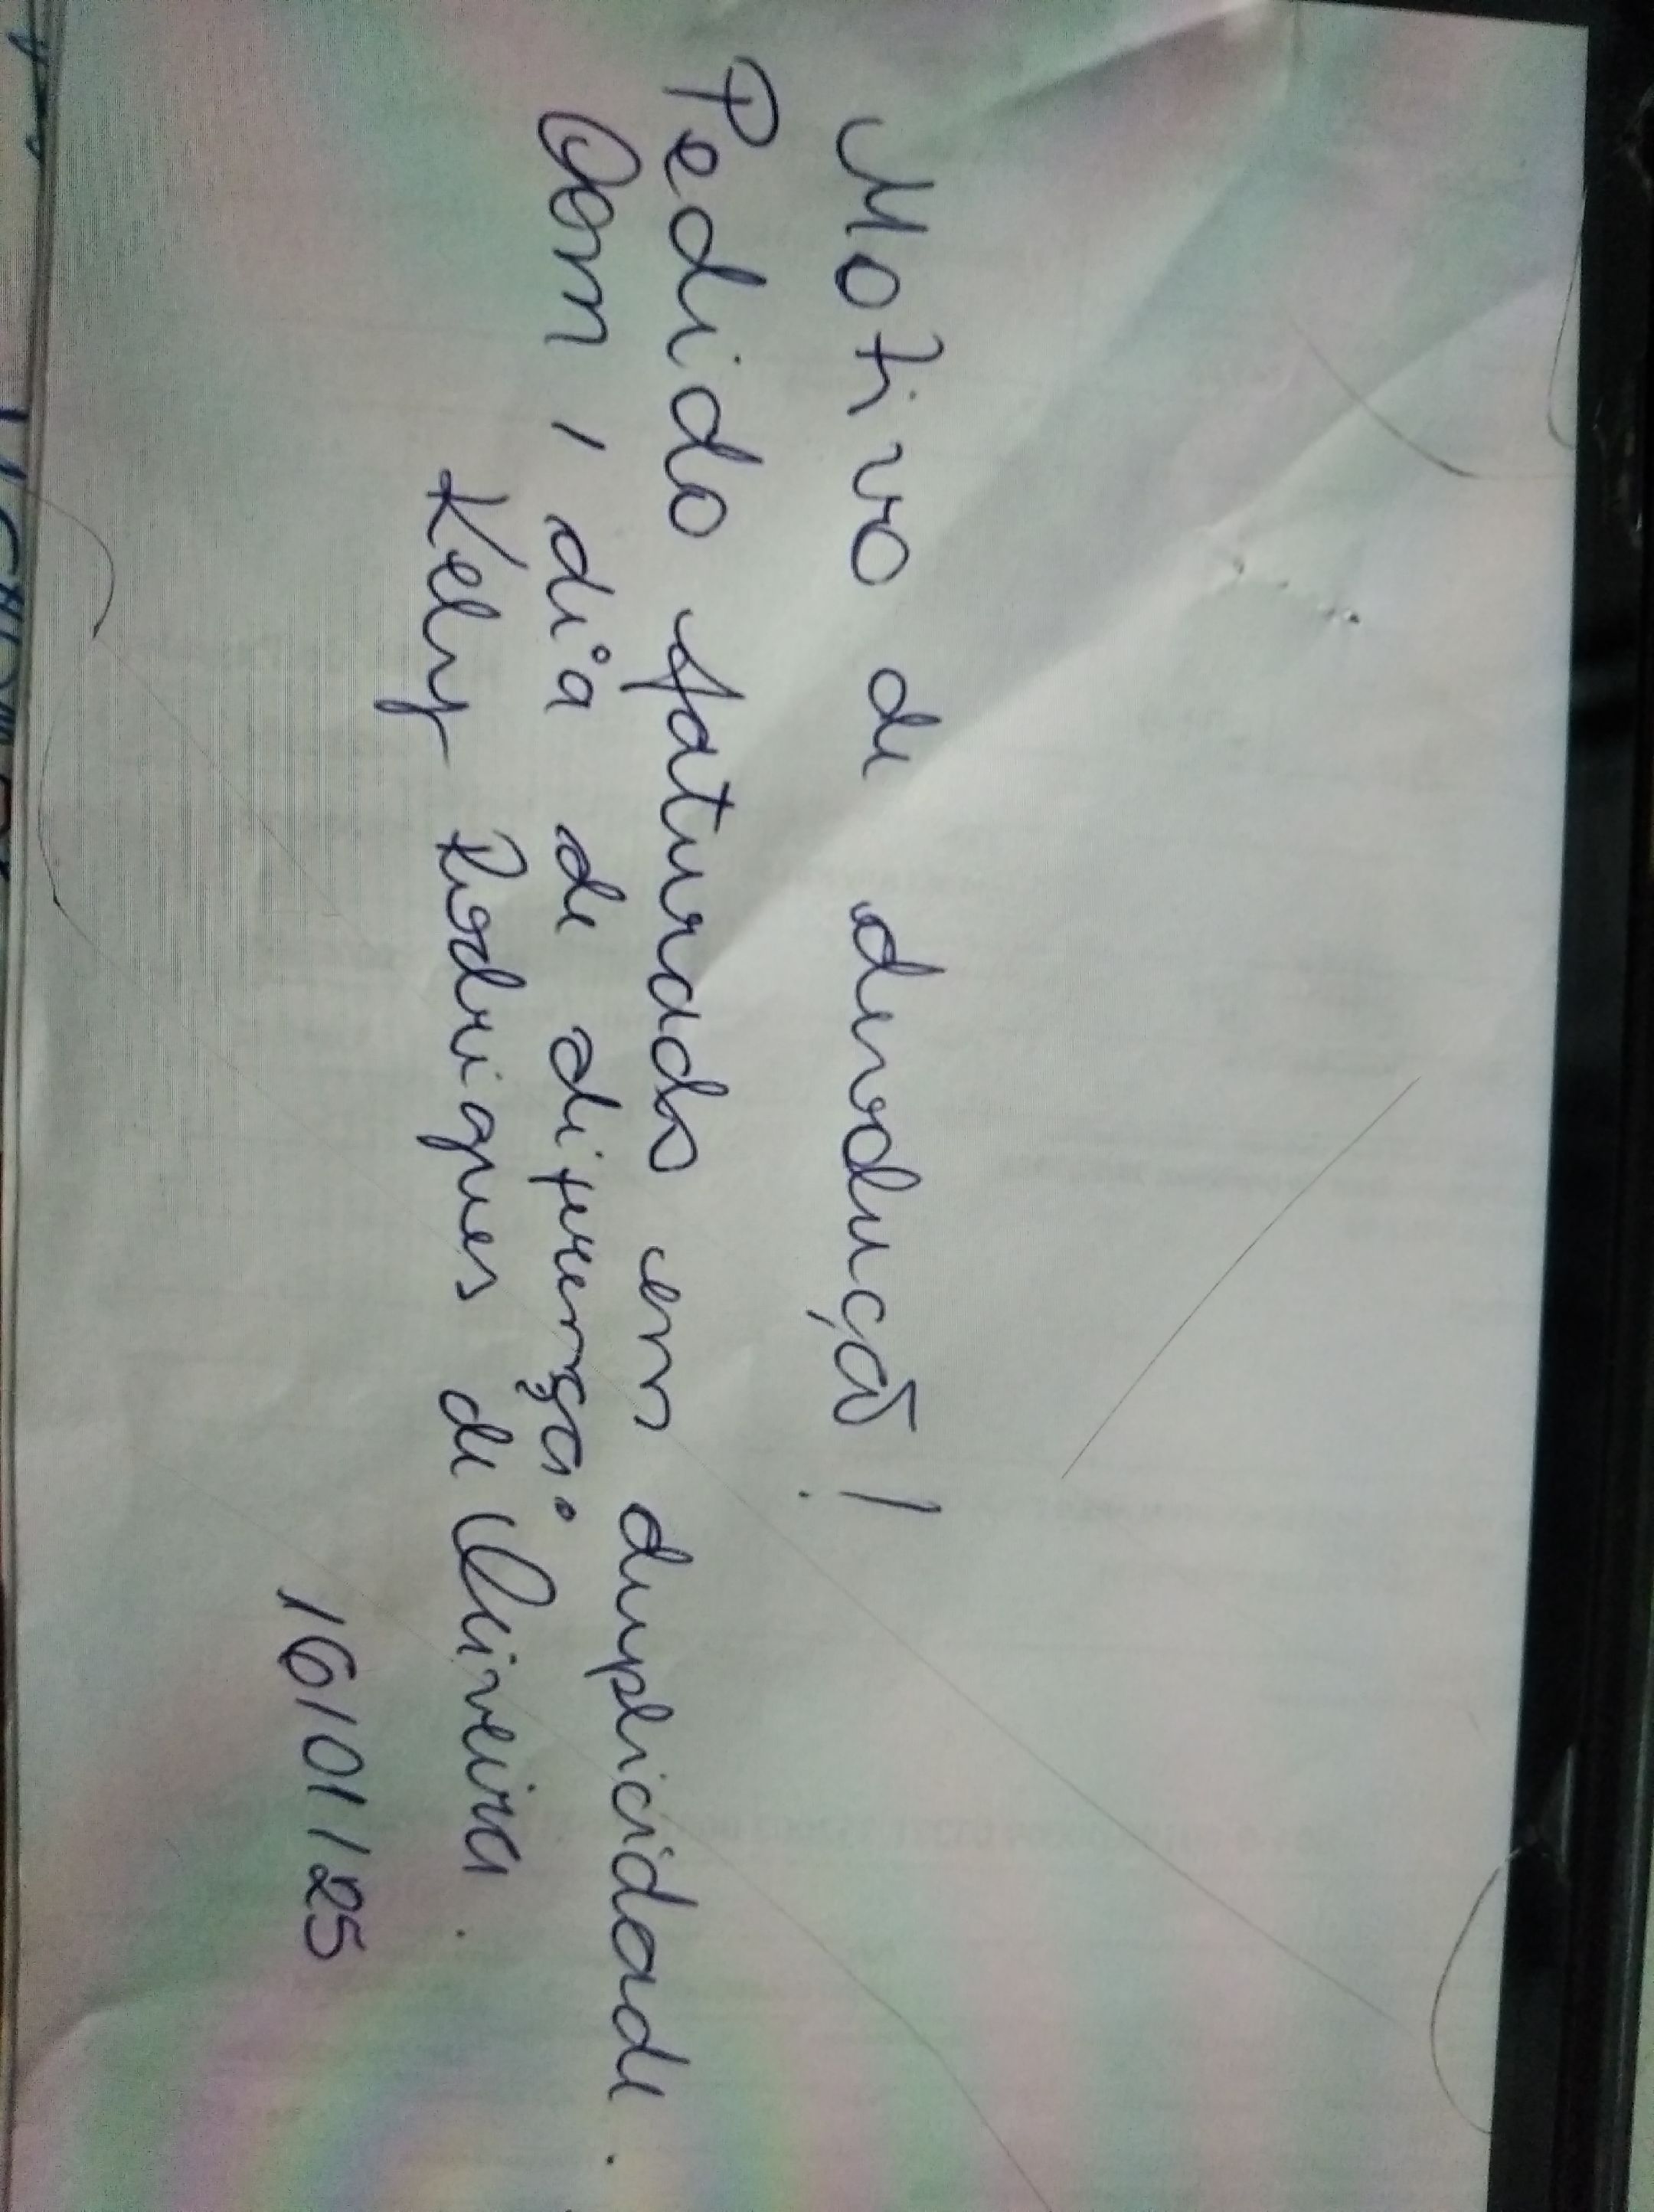 Motivo de devolução!
Pedido faturado em duplicidade.
Com 1 dia de diferença.
Kelly Rodrigues de Oliveira.
16/01/25